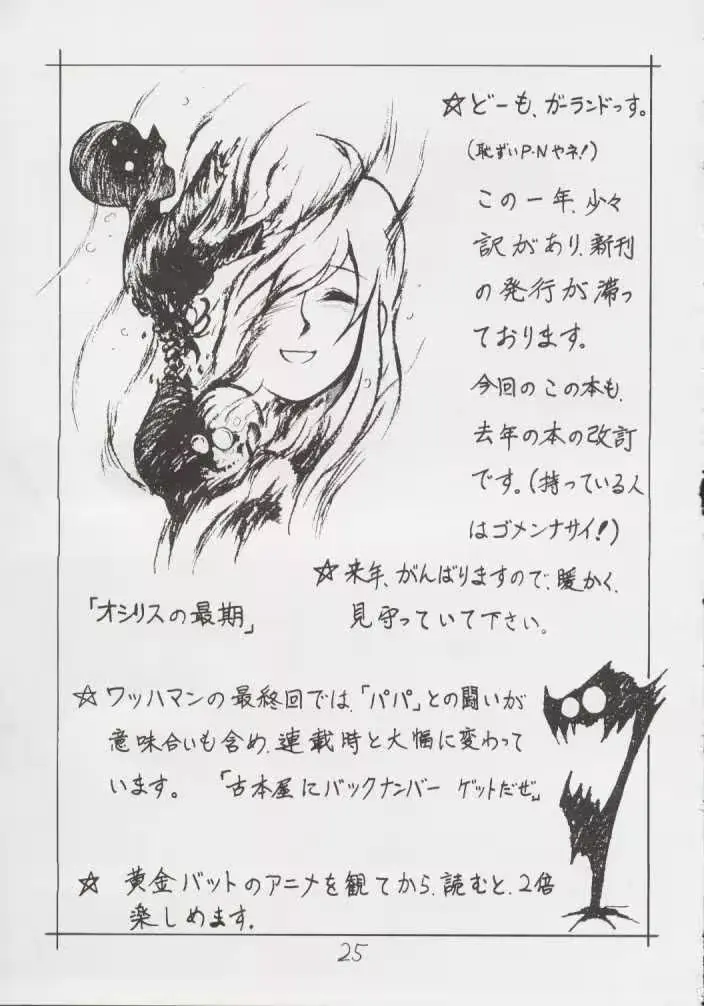 ☆どーも、ガーランドっす。
(恥ずいP・Nやネ!)
この一年、少々
訳があり、新刊
の発行が滞っ
ております。
今回のこの本も、
去年の本の改訂
です。(持っている人
はゴメンナサイ!)
☆来年、がんばりますので、暖かく、
見守っていて下さい。
「オシリスの最期」
☆ワッハマンの最終回では、「パパ」との闘いが
意味合いも含め、連載時と大幅に変わって
います。 「古本屋にバックナンバー ゲットだぜ」
☆ 黄金バットのアニメを観てから、読むと、2倍
楽しめます.
25